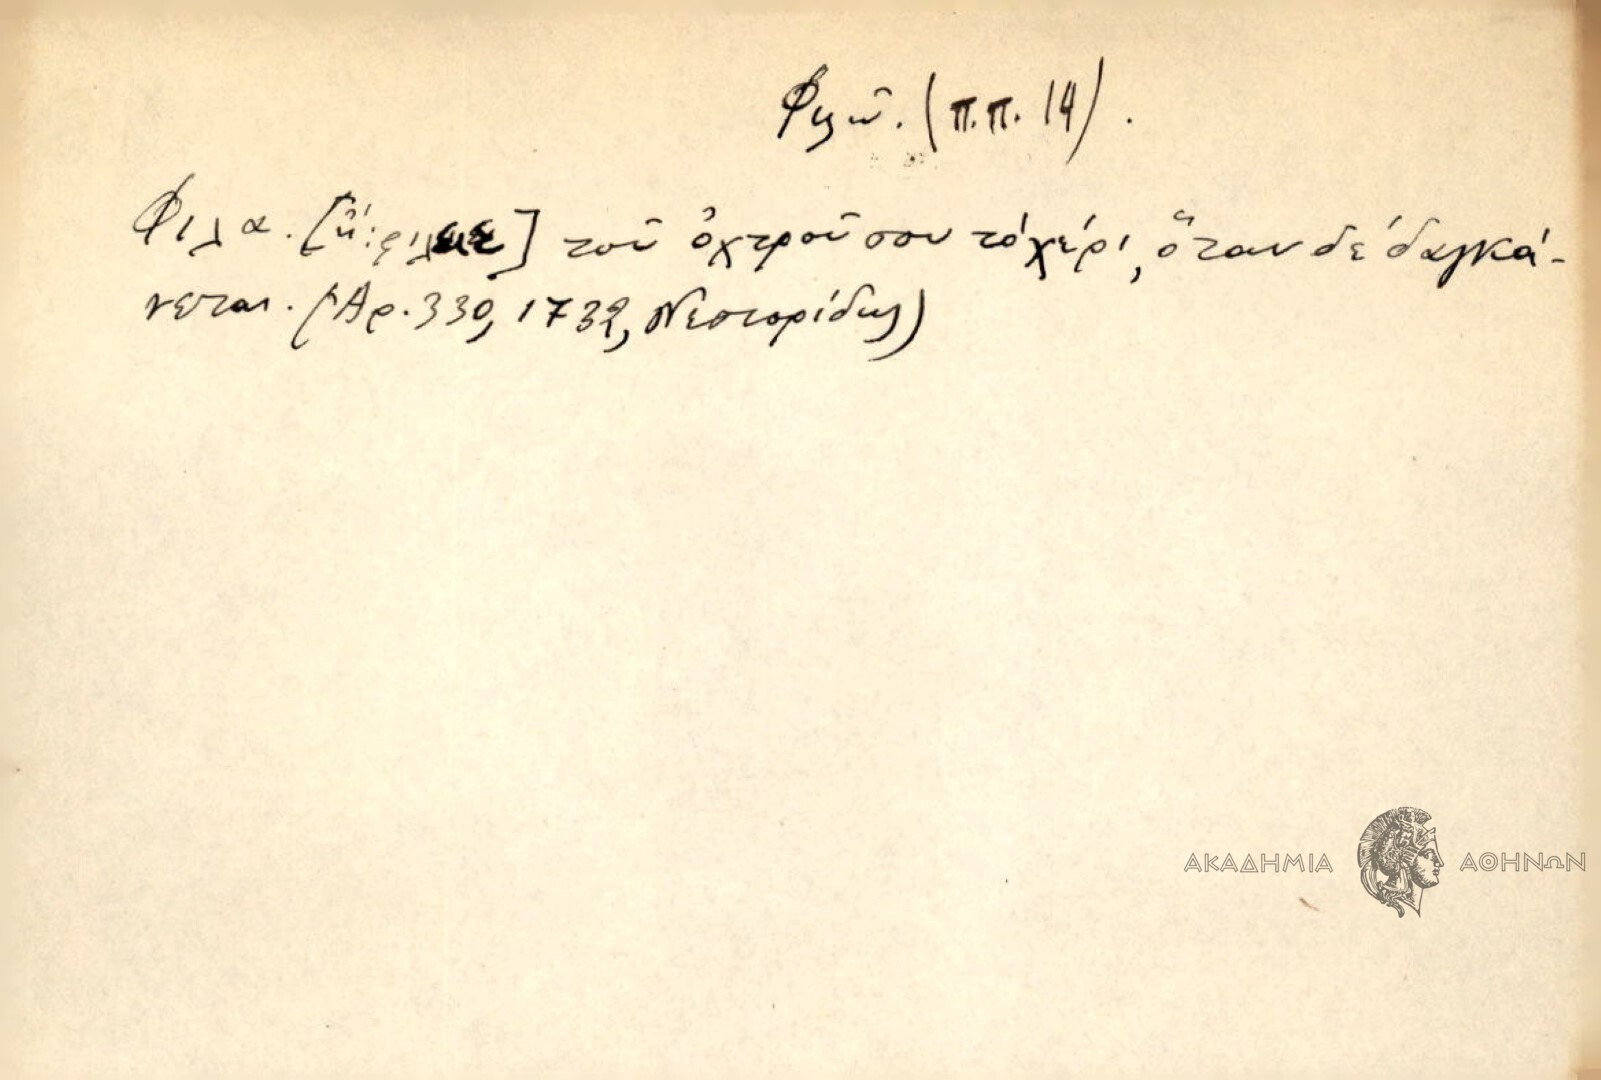 Φιλῶ. (π.π. 14).
Φιλα. [ἤ: φιλεε] τοῦ ὀχτροῦ σου τό χέρι, ὅταν δέ δαγκά-
νεται. (Ἀρ. 330, 1732, Νεστορίδης)
ΑΚΑΔΗΜΙΑ ΑΘΗΝΩΝ